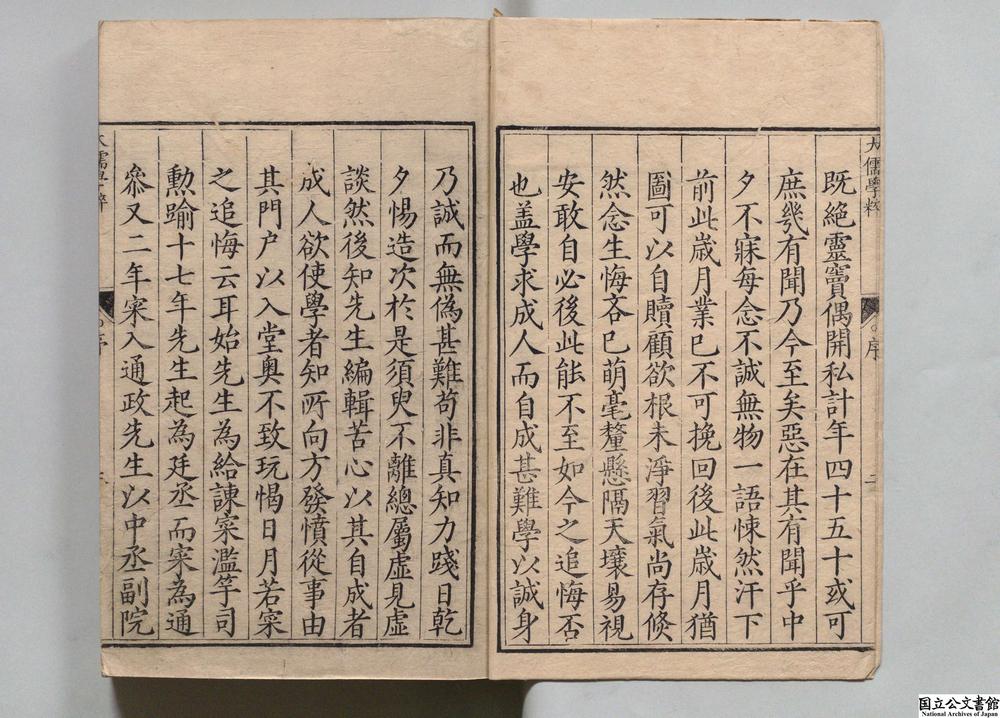 大儒學粹
序
二
既絶靈竇偶開私計年四十五十或可
庶㡬有聞乃今至矣惡在其有聞乎中
夕不寐每念不誠無物一語悚然汗下
前此歲月業已不可挽回後此歲月猶
圖可以自贖顧欲根未淨習氣尚存倐
然念生悔吝已萌毫釐懸隔天壤易視
安敢自必後此能不至如今之追悔否
也盖學求成人而自成甚難學以誠身
乃誠而無僞甚難茍非真知力踐日乾
夕惕造次於是須臾不離總屬虛見虛
談然後知先生編輯苦心以其自成者
成人欲使學者知所向方發憤從事由
其門户以入堂奥不致玩愒日月若寀
之追悔云耳始先生為給諫寀濫竽司
勲踰十七年先生起為廷丞而寀為通
叅又二年寀入通政先生以中丞副院
大儒學粹
序
国立公文書館
National Archives of Japan